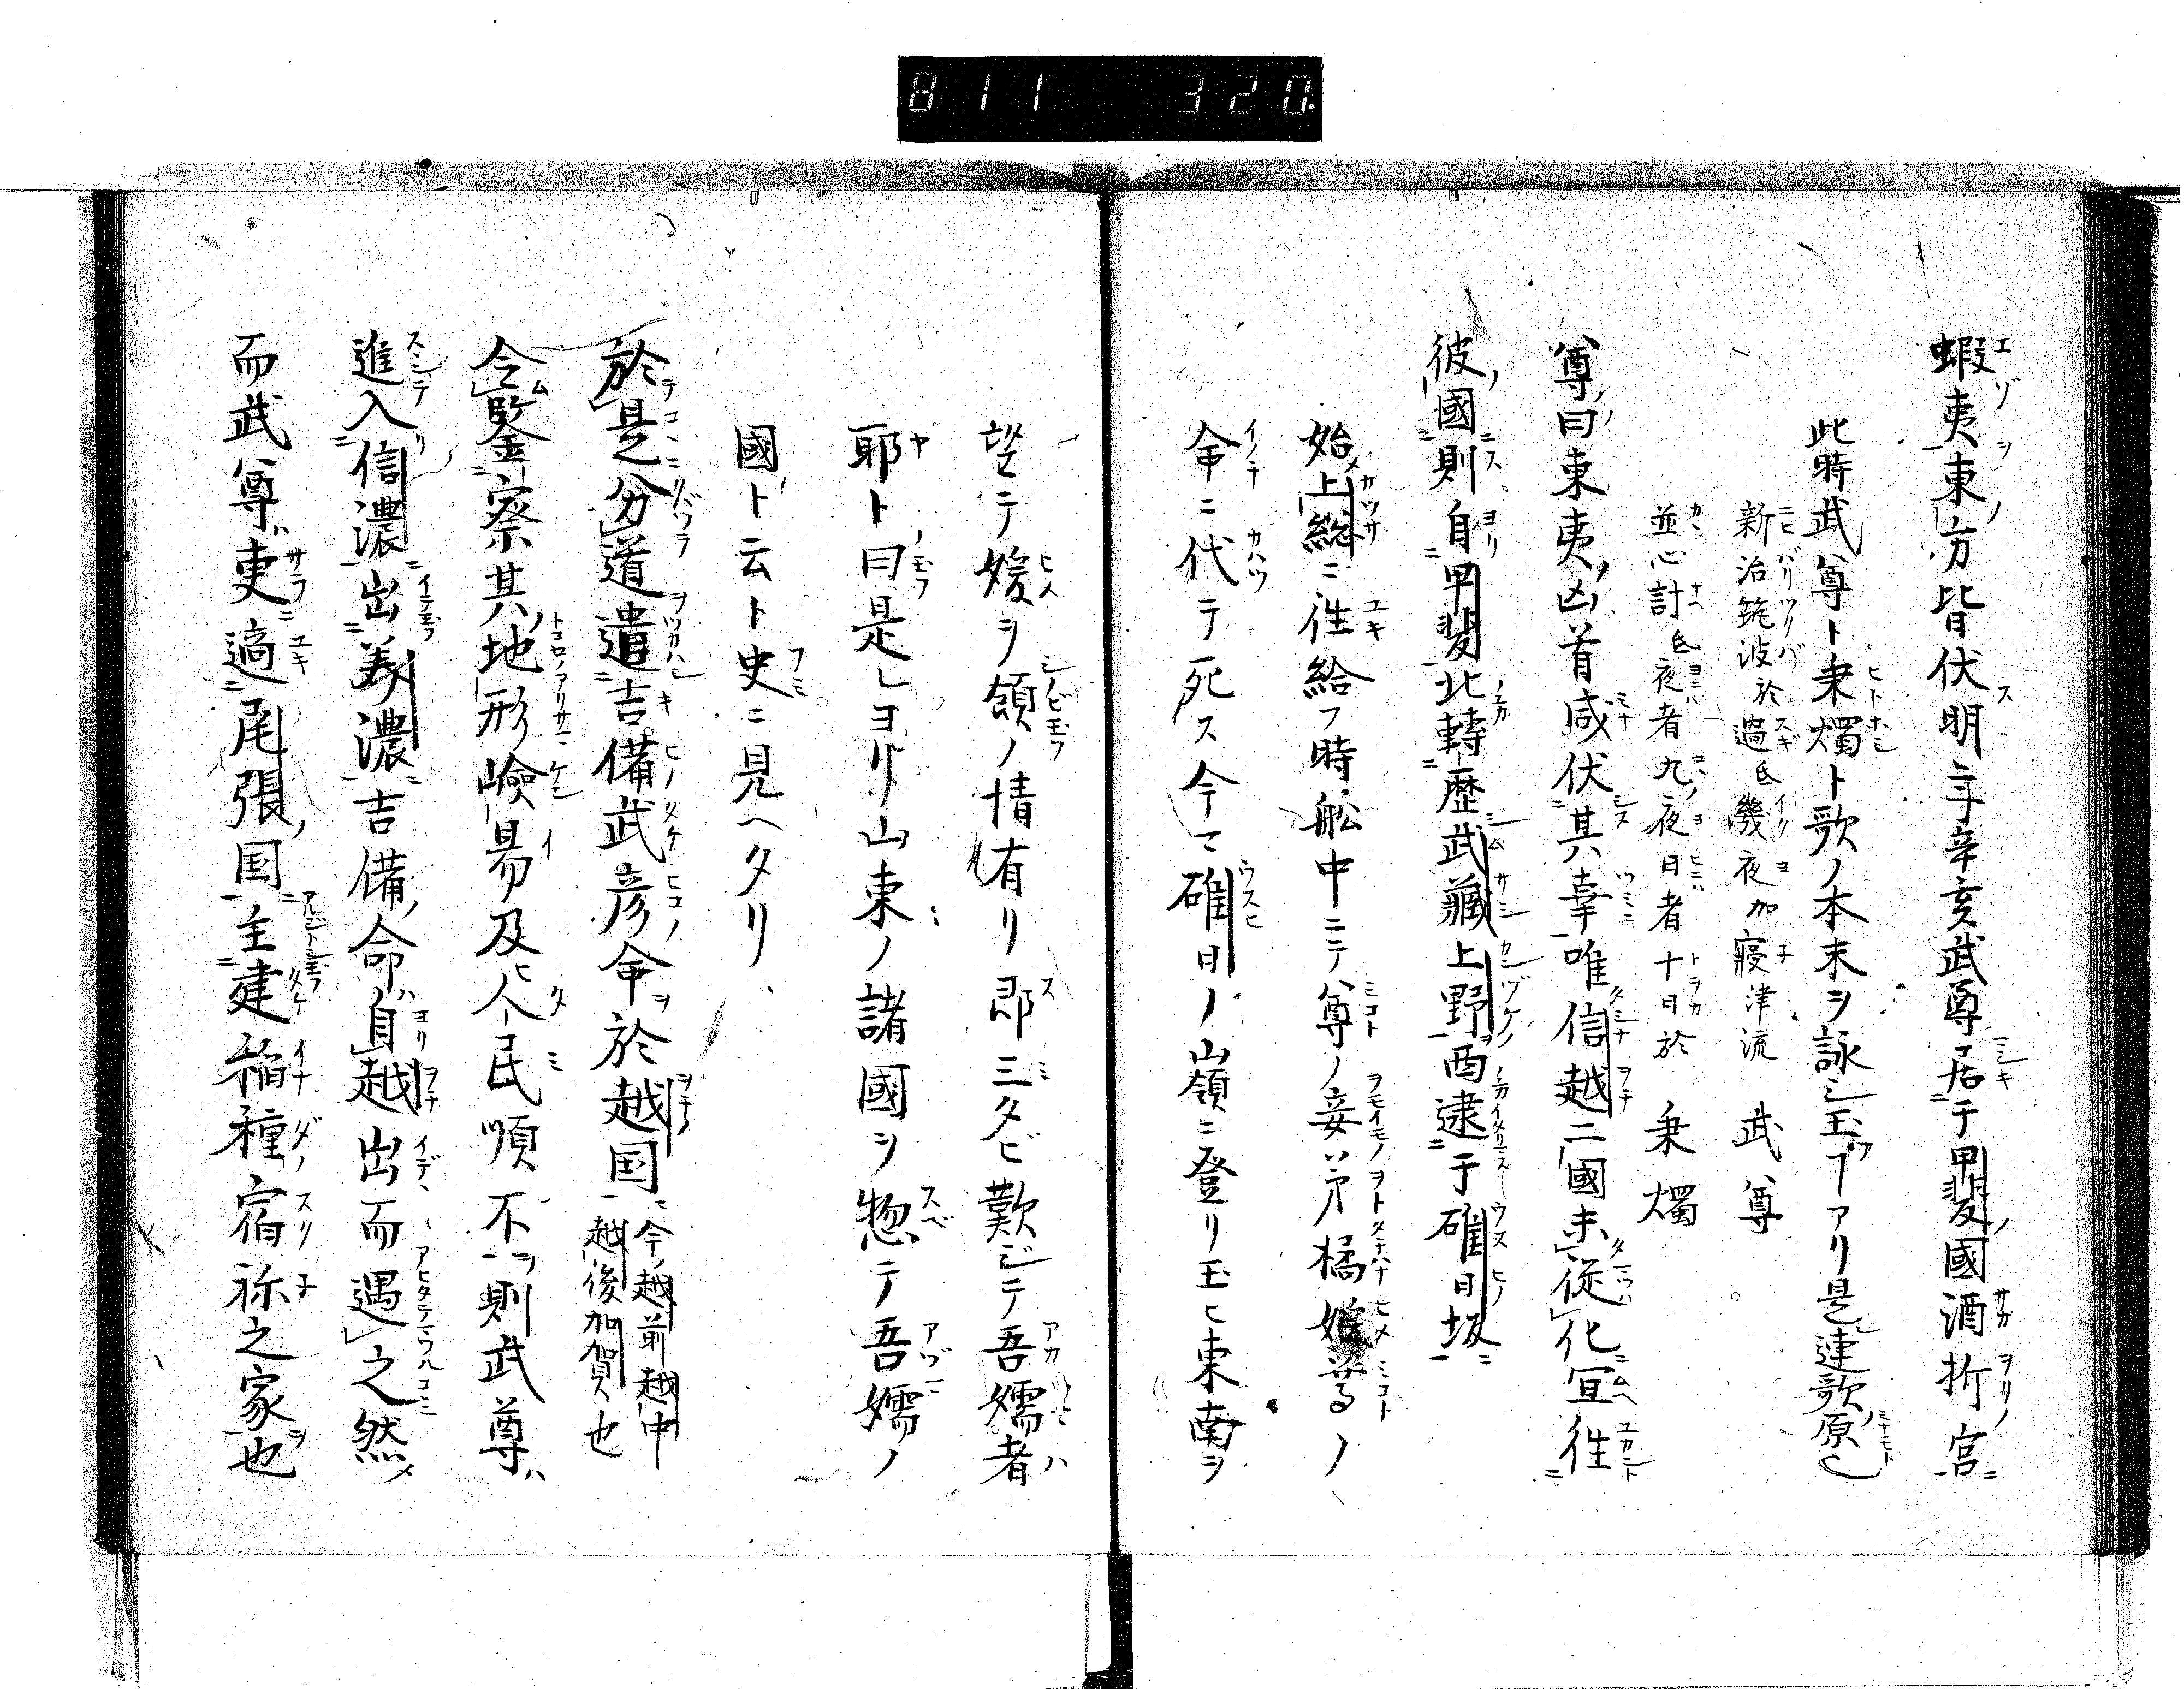 811 320
蝦夷東方皆伏明年辛亥武尊居于甲斐國酒折宮
此時武尊ト秉燭ト歌ノ本末ヲ詠シ玉フヿアリ是連歌原也
新治筑波於過氐幾夜加寢津流 武尊
並心計氐夜者九夜日者十日於 秉燭
尊曰東夷凶首咸伏其辜唯信越二國未從化宜往
彼國則自甲斐北轉歴武藏上野西逮于碓日坂
始上総ニ徃給フ時舩中ニテ尊ノ妾弟橘媛尊ノ
命ニ代テ死ス今マ碓日ノ山嶺ニ登リ玉ヒ東南ヲ
望ニテ媛ヲ領ノ情有リ郡三タビ歎ジテ吾嬬者
耶ト曰是レヨリ山東ノ諸國ヲ惣テ吾嬬ノ
國ト云ト史ニ見ヘタリ
於是分道遣吉備武彦命於越国 今ノ越前越中越後加賀也
令鑒察其地形嶮易及人民順不則武尊
進入信濃出美濃吉備命自越出而遇之然
而武尊吏適尾張国主建稲種宿祢之家也